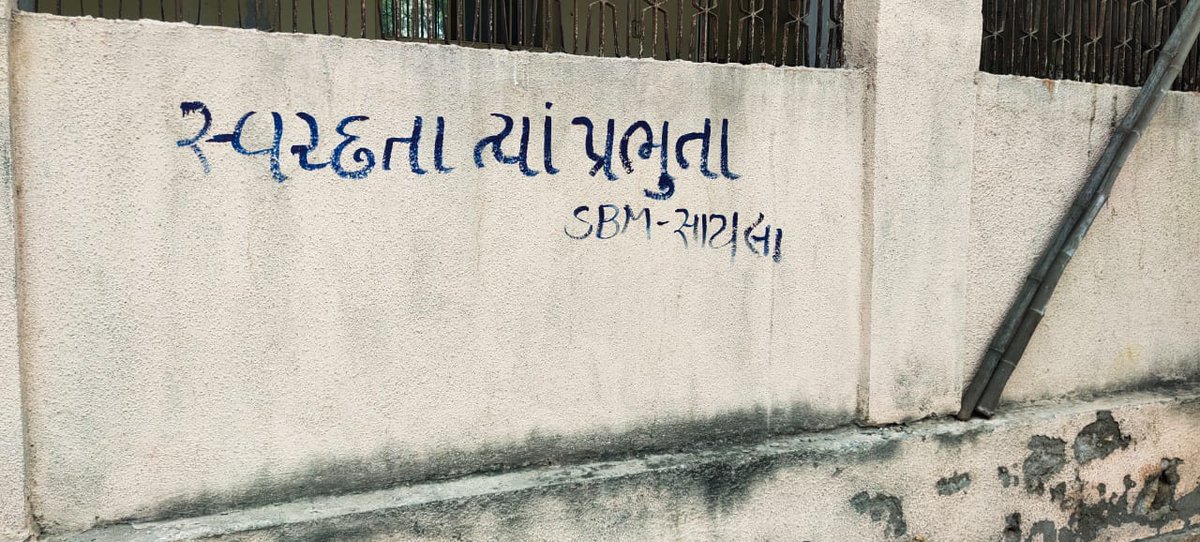 સ્વચ્છતા ત્યાં પ્રભુતા
SBM-સાયલા